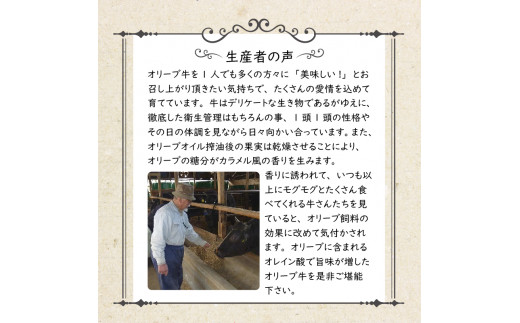 生産者の声
オリーブ牛を1人でも多くの方々に「美味しい！」とお
召し上がり頂きたい気持ちで、たくさんの愛情を込めて
育てています。牛はデリケートな生き物であるがゆえに、
徹底した衛生管理はもちろんの事、1頭1頭の性格や
その日の体調を見ながら日々向かい合っています。また、
オリーブオイル搾油後の果実は乾燥させることにより、
オリーブの糖分がカラメル風の香りを生みます。
香りに誘われて、いつも以
上にモグモグとたくさん食
べてくれる牛さんたちを見
ていると、オリーブ飼料の
効果に改めて気付かされ
ます。オリーブに含まれる
オレイン酸で旨味が増した
オリーブ牛を是非ご堪能
下さい。